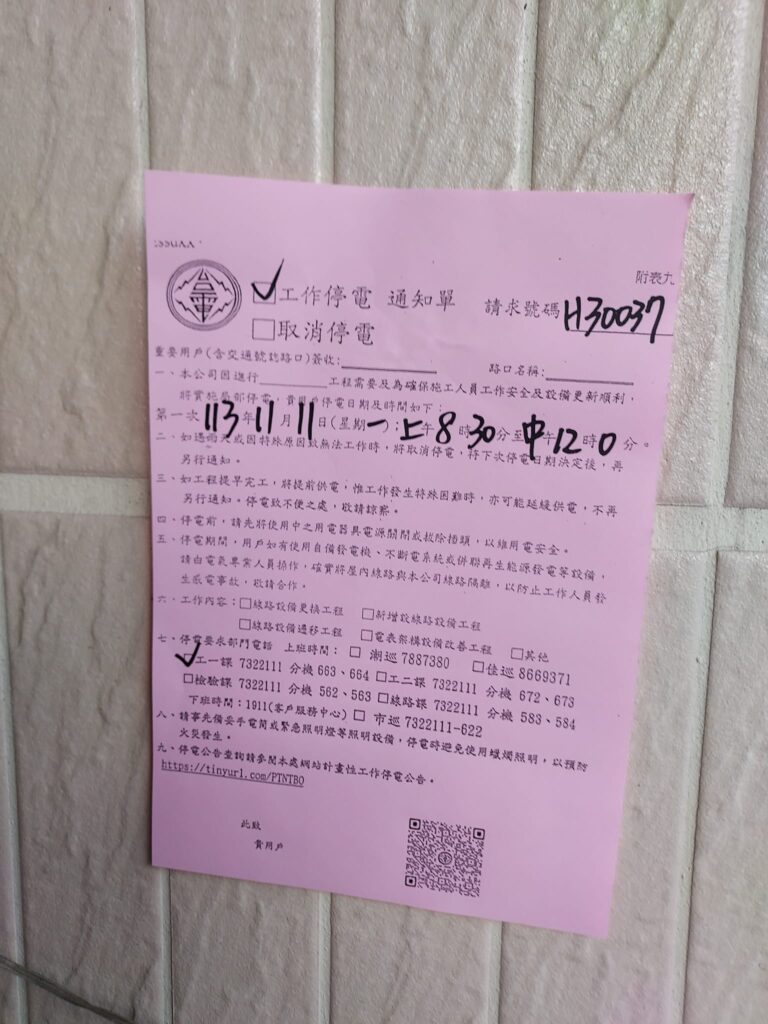 附表九
台電
工作停電 通知單 請求號碼H30037
取消停電
重要用戶(含交通號誌路口)簽收: 路口名稱:
一、本公司因進行 工程需要及為確保施工人員工作安全及設備更新順利,
將實施局部停電,貴用戶停電日期及時間如下:
第一次 113年11月11日(星期一)上午8時30分至中午12時0分。
二、如遇雨天或因特殊原因致無法工作時,將取消停電,待下次停電日期決定後,再
另行通知。
三、如工程提早完工,將提前供電,惟工作發生特殊困難時,亦可能延緩供電,不再
另行通知。停電致不便之處,敬請諒察。
四、停電前,請先將使用中之用電器具電源關閉或拔除插頭,以維用電安全。
五、停電期間,用戶如有使用自備發電機、不斷電系統或併聯再生能源發電等設備,
請由電氣專業人員操作,確實將屋內線路與本公司線路隔離,以防止工作人員發
生感電事故,敬請合作。
六、工作內容:□線路設備更換工程 □新增設線路設備工程
□線路設備遷移工程 □電表架構設備改善工程 □其他
七、停電要求部門電話 上班時間: □ 潮巡 7887380 □佳巡 8669371
工一課 7322111 分機 663、664 □工二課 7322111 分機 672、673
□檢驗課 7322111 分機 562、563 □線路課 7322111 分機 583、584
下班時間:1911(客戶服務中心) □ 市巡 7322111-622
八、請事先備妥手電筒或緊急照明燈等照明設備,停電時避免使用蠟燭照明,以預防
火災發生。
九、停電公告查詢請參閱本處網站計畫性工作停電公告。
https://tinyurl.com/PTNTBO
此致
貴用戶